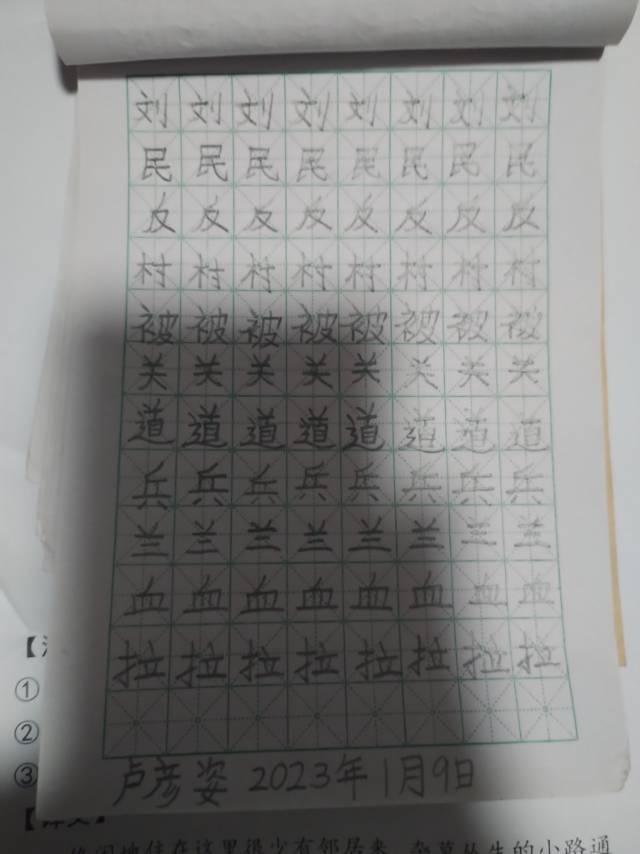 刘刘刘刘刘刘刘刘
民民民民民民民民
反反反反反反反反
村村村村村村村村
被被被被被被被被
关关关关关关关关
道道道道道道道道
兵兵兵兵兵兵兵兵
兰兰兰兰兰兰兰兰
血血血血血血血血
拉拉拉拉拉拉拉拉
卢彦姿 2023年1月9日
①
②
③
住在这里很少有邻居来 杂草丛生的小路通